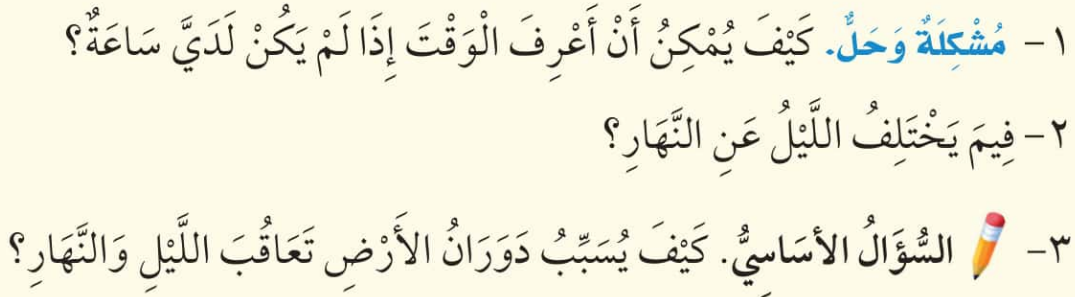 ١ – مُشْكِلَةٌ وَحَلٌّ. كَيْفَ يُمْكِنُ أَنْ أَعْرِفَ الْوَقْتَ إِذَا لَمْ يَكُنْ لَدَيَّ سَاعَةٌ؟
٢ – فِيمَ يَخْتَلِفُ اللَّيْلُ عَنِ النَّهَارِ؟
٣ – السُّؤَالُ الأَسَاسِيُّ. كَيْفَ يُسَبِّبُ دَوَرَانُ الأَرْضِ تَعَاقُبَ اللَّيْلِ وَالنَّهَارِ؟